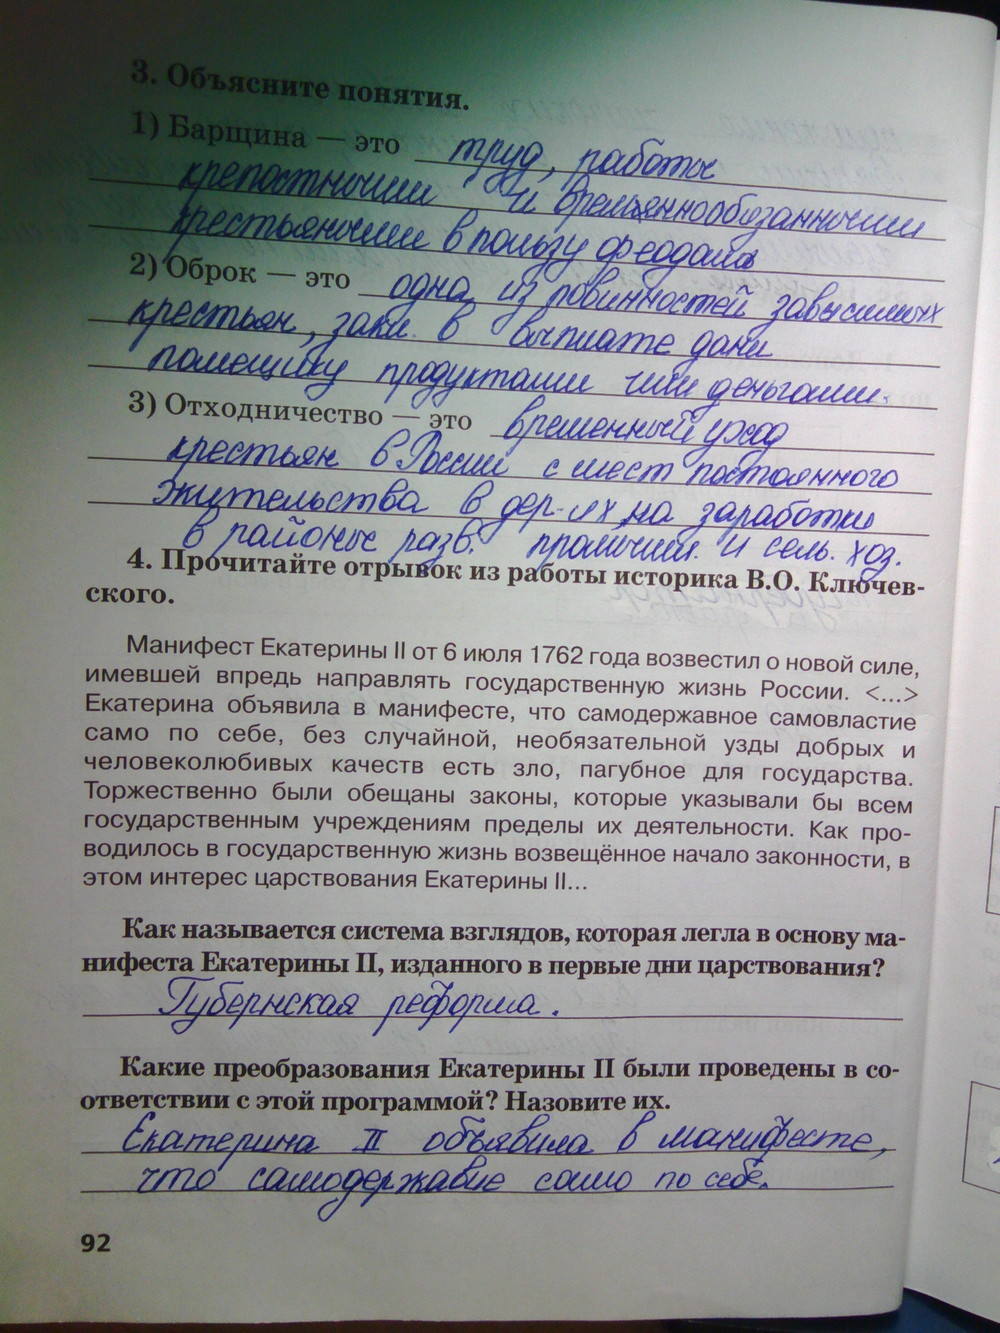 3. Объясните понятия.
1) Барщина — это труд, работы
крепостными и временнообязанными
крестьянами в пользу феодала
2) Оброк — это одна из повинностей зависимых
крестьян, закл. в выплате дани
помещику продуктами или деньгами.
3) Отходничество — это временный уход
крестьян в России с мест постоянного
жительства в дер-ях на заработки
в районы разв. промышл. и сель. хоз.
4. Прочитайте отрывок из работы историка В.О. Ключев-
ского.
Манифест Екатерины II от 6 июля 1762 года возвестил о новой силе,
имевшей впредь направлять государственную жизнь России. <...>
Екатерина объявила в манифесте, что самодержавное самовластие
само по себе, без случайной, необязательной узды добрых и
человеколюбивых качеств есть зло, пагубное для государства.
Торжественно были обещаны законы, которые указывали бы всем
государственным учреждениям пределы их деятельности. Как про-
водилось в государственную жизнь возвещённое начало законности, в
этом интерес царствования Екатерины II...
Как называется система взглядов, которая легла в основу ма-
нифеста Екатерины II, изданного в первые дни царствования?
Губернская реформа.
Какие преобразования Екатерины II были проведены в со-
ответствии с этой программой? Назовите их.
Екатерина II объявила в манифесте,
что самодержавие само по себе.
92